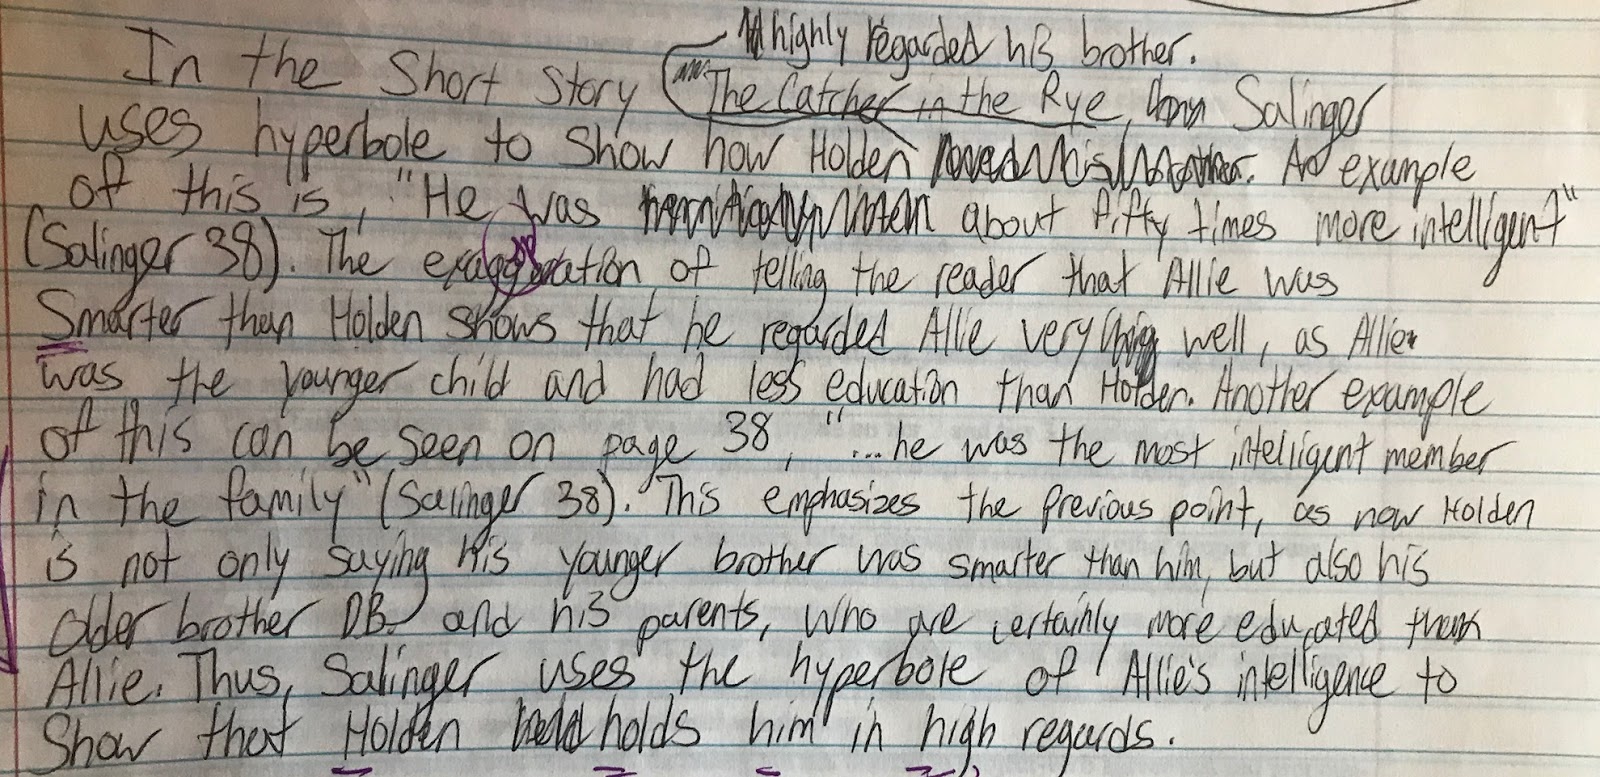 highly regarded his brother.
In the Short Story The Catcher in the Rye, Salinger
uses hyperbole to show how Holden loved his brother. An example
of this is, "He was about fifty times more intelligent"
(Salinger 38). The exaggeration of telling the reader that Allie was
Smarter than Holden shows that he regarded Allie very well, as Allie
was the younger child and had less education than Holden. Another example
of this can be seen on page 38, "...he was the most intelligent member
in the family" (Salinger 38). This emphasizes the previous point, as now Holden
is not only saying his younger brother was smarter than him, but also his
older brother DB and his parents, who are certainly more educated than
Allie. Thus, Salinger uses the hyperbole of Allie's intelligence to
Show that Holden holds him in high regards.